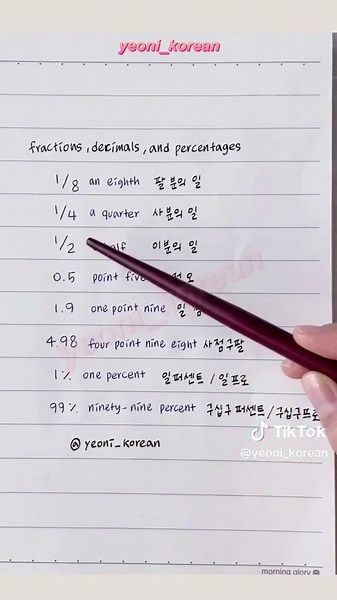 yeoni_korean
fractions, decimals, and percentages
1/8 an eighth 팔 분의 일
1/4 a quarter 사분의 일
1/2 half 이분의 일
0.5 point five
1.9 one point nine 일
4.98 four point nine eight 사점구팔
1% one percent 일퍼센트 / 일프로
99% ninety-nine percent 구십구 퍼센트 / 구십구프로
@yeoni_korean
TikTok
@yeoni_korean
yeoni_korean
morning glory